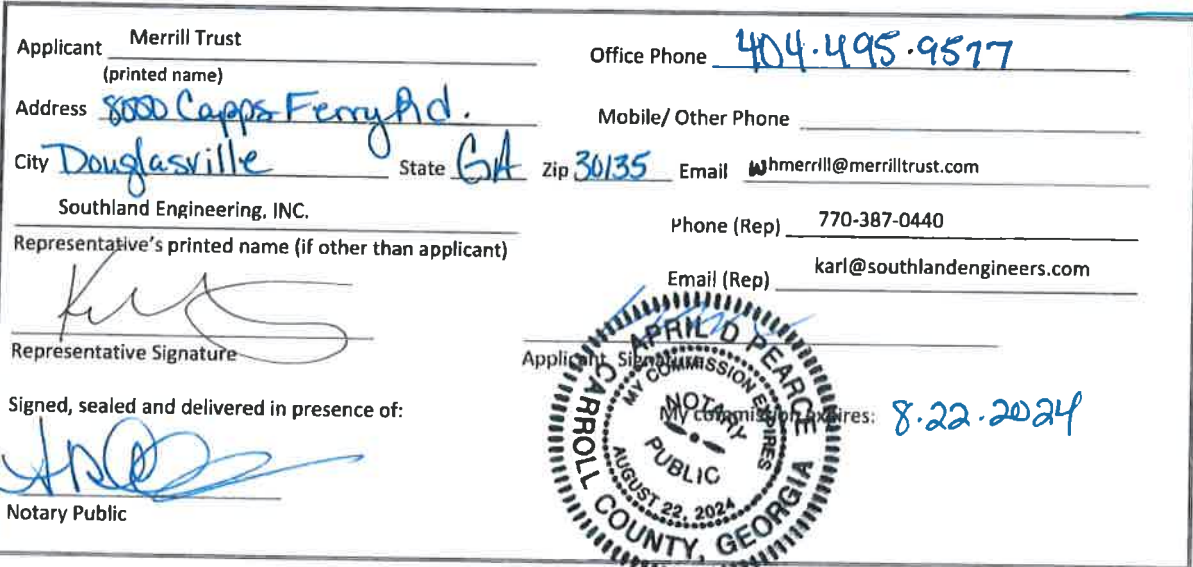 Applicant Merrill Trust
(printed name)
Office Phone 404.495.9577
Address 8000 Capps Ferry Rd.
Mobile/ Other Phone
City Douglasville State GA Zip 30135 Email whmerrill@merrilltrust.com
Southland Engineering, INC.
Phone (Rep) 770-387-0440
Representative's printed name (if other than applicant)
Email (Rep) karl@southlandengineers.com
Representative Signature
Applicant Signature
Signed, sealed and delivered in presence of:
My commission expires: 8.22.2024
Notary Public
APRIL D PEARCE
CARROLL COUNTY, GEORGIA
MY COMMISSION EXPIRES
AUGUST 22, 2024
NOTARY
PUBLIC